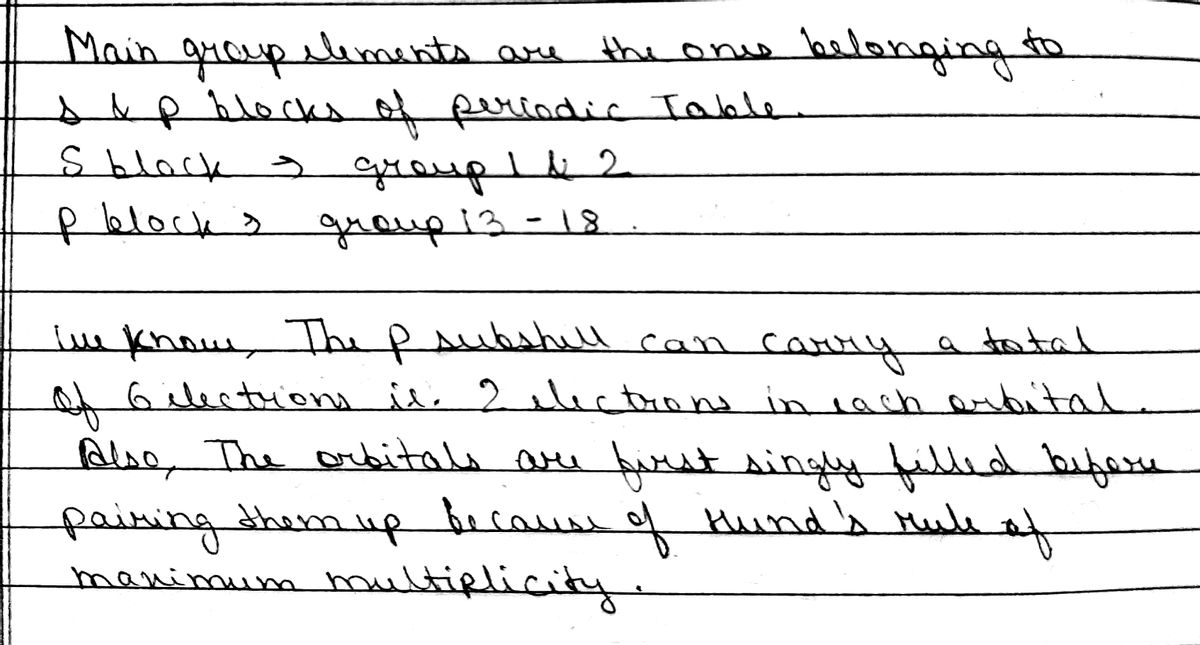 Main group elements are the ones belonging to
s & p blocks of periodic Table.
S block → group 1 & 2
p block → group 13 - 18.
we know, The p subshell can carry a total
of 6 electrons ie. 2 electrons in each orbital.
Also, The orbitals are first singly filled before
pairing them up because of Hund's rule of
maximum multiplicity.